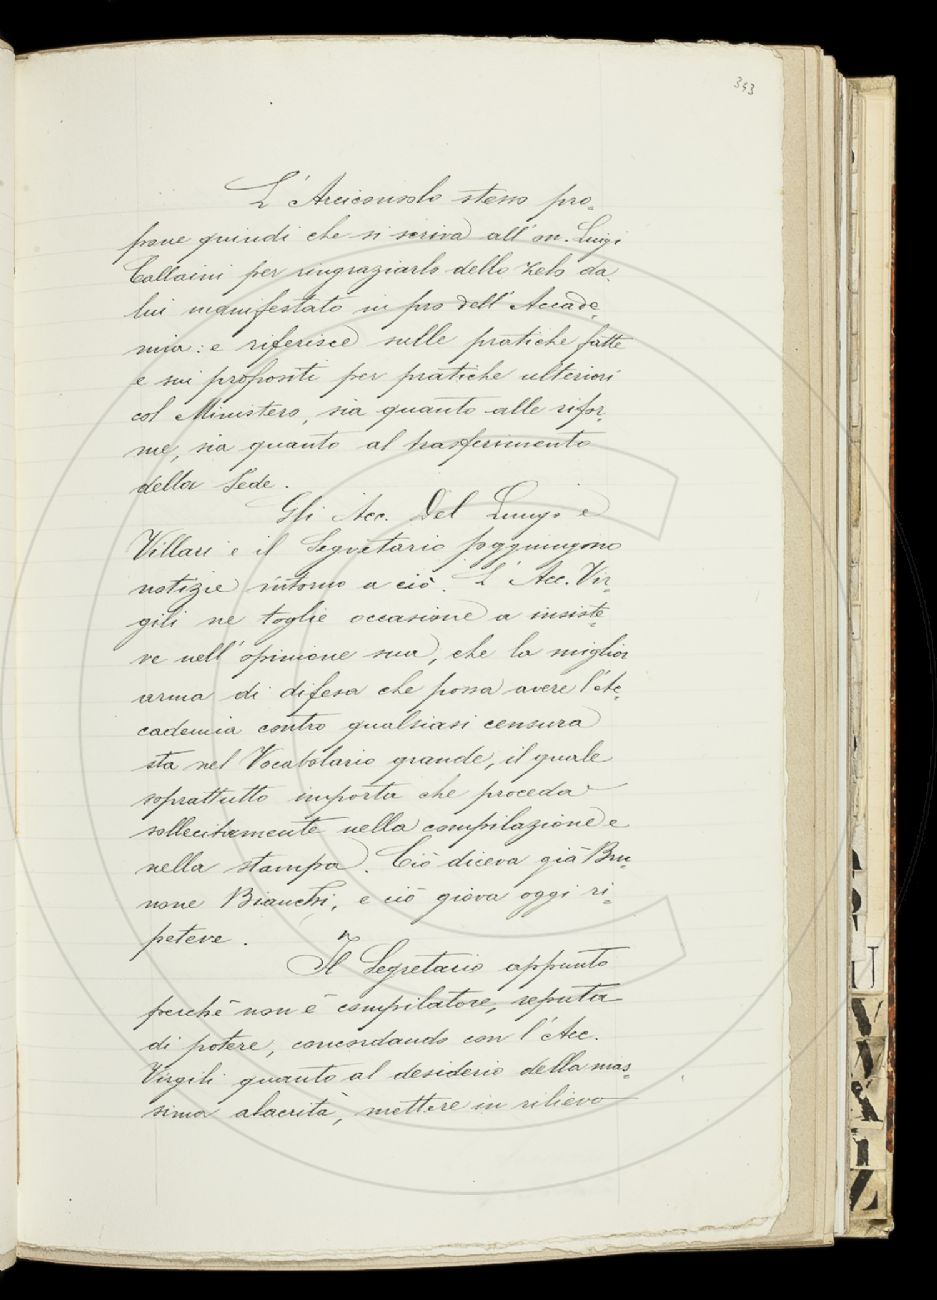 343
L'Arciconsolo stesso pro-
pone quindi che si scriva all'on. Luigi
Callaini per ringraziarlo dello zelo da
lui manifestato in pro dell'Accade-
mia: e riferisce sulle pratiche fatte
e sui propositi per pratiche ulteriori
col Ministero, sia quanto alle rifor-
me, sia quanto al trasferimento
della Sede.
Gli Acc. Del Lungo e
Villari e il Segretario soggiungono
notizie intorno a ciò. L'Acc. Vir-
gili ne toglie occasione a insiste-
re nell'opinione sua, che la miglior
arma di difesa che possa avere l'Ac-
cademia contro qualsiasi censura
sta nel Vocabolario grande, il quale
soprattutto importa che proceda
sollecitamente nella compilazione e
nella stampa. Ciò diceva già Bru-
none Bianchi, e ciò giova oggi ri-
petere.
Il Segretario appunto
perchè non è compilatore, reputa
di potere, concordando con l'Acc.
Virgili quanto al desiderio della mas-
sima alacrità, mettere in rilievo
U
V
X
Z